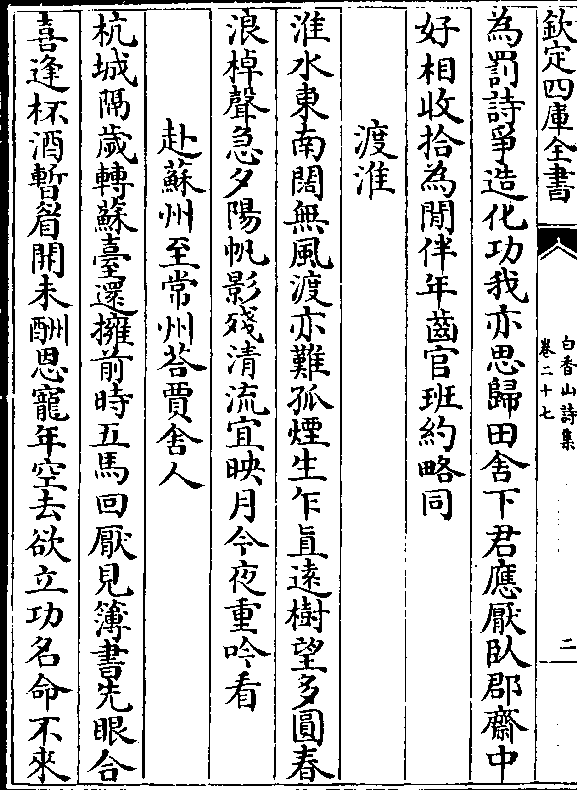 欽定四庫全書
白香山詩集
卷二十七
二
為罰詩爭造化功我亦思歸田舍下君應厭臥郡齋中
好相收拾為閒伴年齒官班約略同
渡淮
淮水東南闊無風渡亦難孤煙生乍直遠樹望多圓春
浪棹聲急夕陽帆影殘清流宜映月今夜重吟看
赴蘇州至常州荅賈舍人
杭城隔歲轉蘇臺還擁前時五馬回厭見簿書先眼合
喜逢杯酒暫眉開未酬恩寵年空去欲立功名命不來